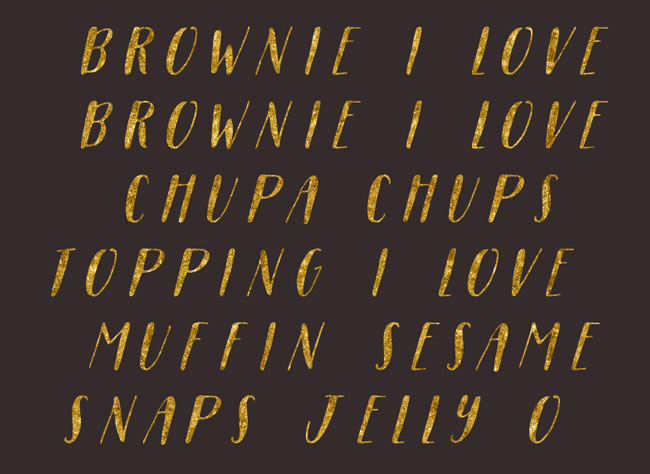 BROWNIE I LOVE
BROWNIE I LOVE
CHUPA CHUPS
TOPPING I LOVE
MUFFIN SESAME
SNAPS JELLY O